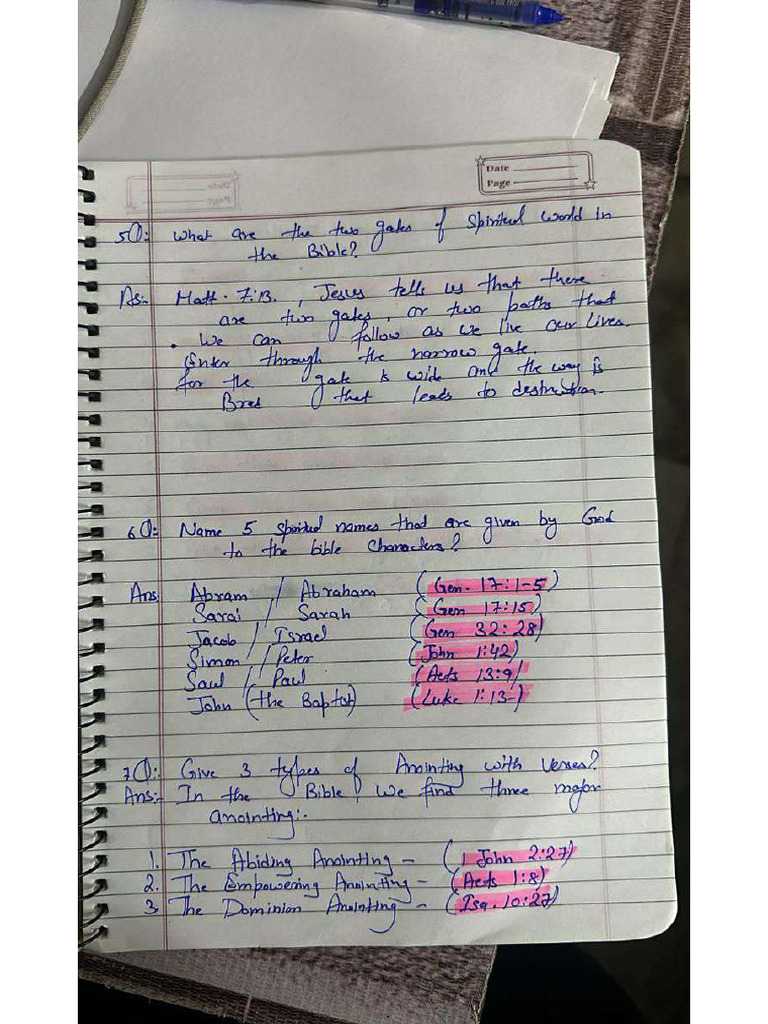 Date
Page
5Q: What are the two gates of Spiritual world in
the Bible?
As:- Matt. 7:13. , Jesus tells us that there
are two gates, or two paths that
. We can follow as we live our lives.
Enter through the narrow gate.
for the gate is wide and the way is
Bred that leads to destruction.
6Q: Name 5 spiritual names that are given by God
to the bible characters?
Ans: Abram / Abraham (Gen. 17:1-5)
Sarai / Sarah (Gen 17:15)
Jacob / Israel (Gen 32:28)
Simon / Peter (John 1:42)
Saul / Paul (Acts 13:9)
John (the Baptist) (Luke 1:13-)
7Q: Give 3 types of Anointing with Verses?
Ans:- In the Bible, We find three major
anointing:-
1. The Abiding Anointing - (1 John 2:27)
2. The Empowering Anointing - (Acts 1:8)
3 The Dominion Anointing - (Isa. 10:27)